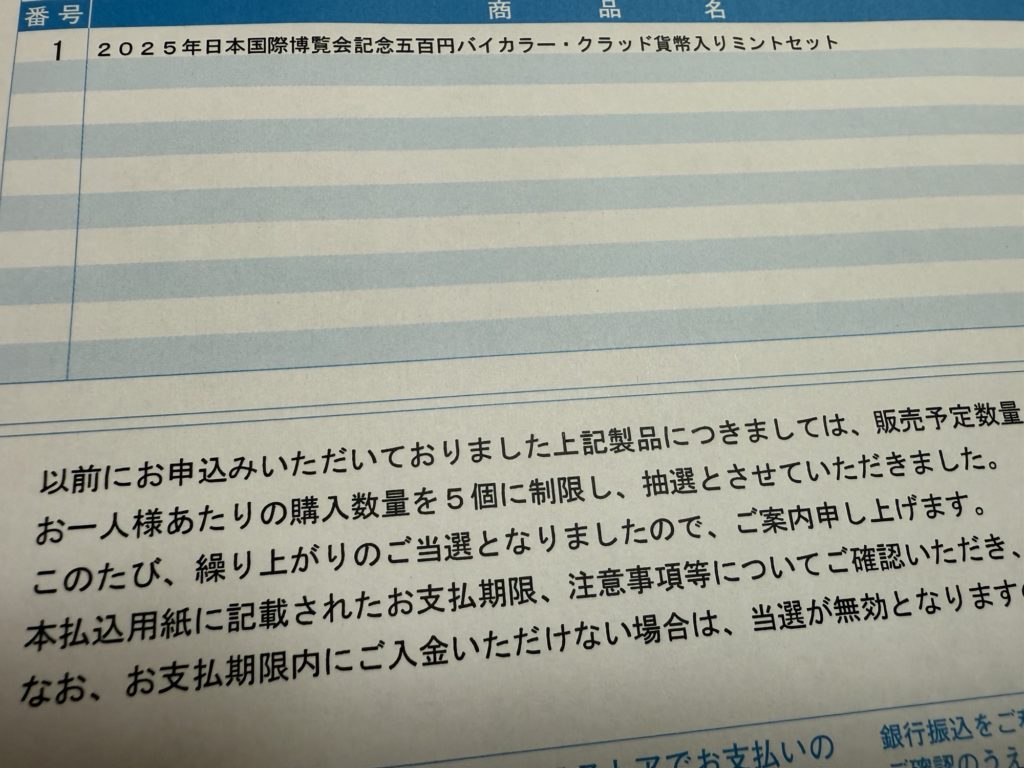 番号 商品名
1 ２０２５年日本国際博覧会記念五百円バイカラー・クラッド貨幣入りミントセット
以前にお申込みいただいておりました上記製品につきましては、販売予定数量
お一人様あたりの購入数量を５個に制限し、抽選とさせていただきました。
このたび、繰り上がりのご当選となりましたので、ご案内申し上げます。
本払込用紙に記載されたお支払期限、注意事項等についてご確認いただき、
なお、お支払期限内にご入金いただけない場合は、当選が無効となります
ストアでお支払いの
銀行振込をご利
ご確認のうえ